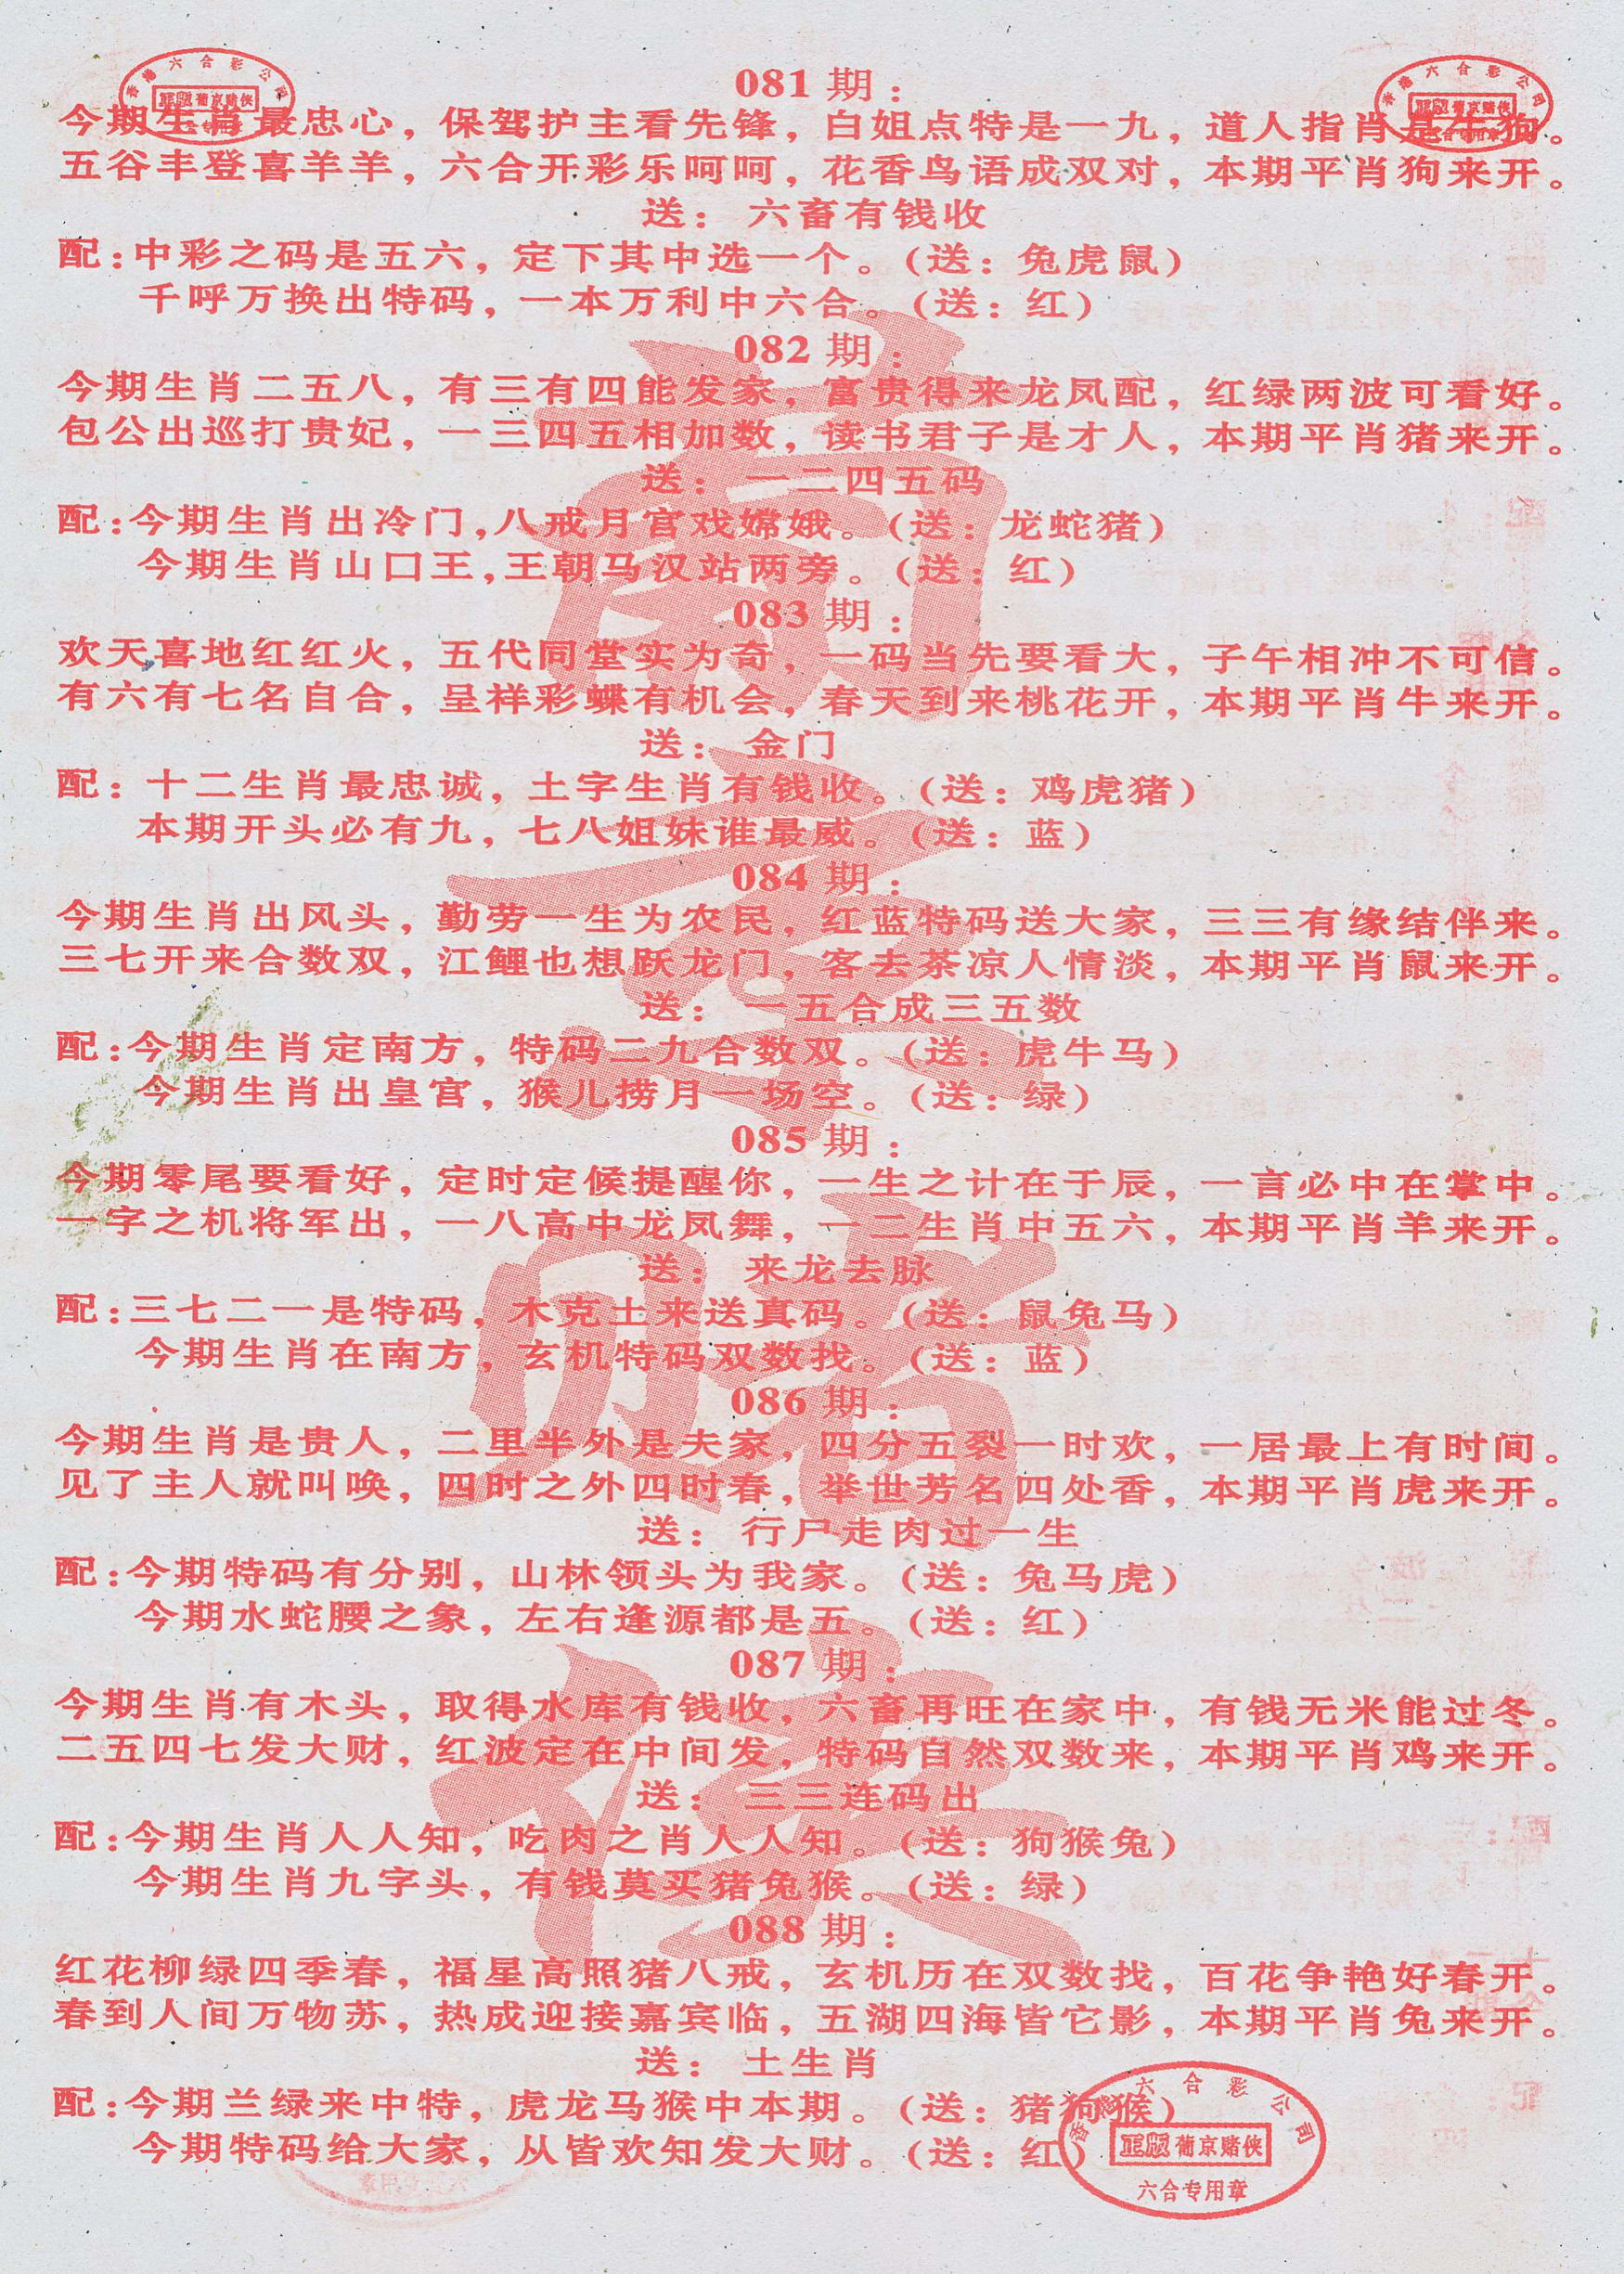 香港六合彩公司
正版 葡京赌侠
六合专用章
香港六合彩公司
正版 葡京赌侠
六合专用章
081 期：
今期生肖最忠心，保驾护主看先锋，白姐点特是一九，道人指肖是牛狗。
五谷丰登喜羊羊，六合开彩乐呵呵，花香鸟语成双对，本期平肖狗来开。
送： 六畜有钱收
配：中彩之码是五六，定下其中选一个。（送：兔虎鼠）
千呼万换出特码，一本万利中六合。（送：红）
082 期：
今期生肖二五八，有三有四能发家，富贵得来龙凤配，红绿两波可看好。
包公出巡打贵妃，一三四五相加数，读书君子是才人，本期平肖猪来开。
送： 一二四五码
配：今期生肖出冷门，八戒月宫戏嫦娥。（送：龙蛇猪）
今期生肖山口王，王朝马汉站两旁。（送：红）
083 期：
欢天喜地红红火，五代同堂实为奇，一码当先要看大，子午相冲不可信。
有六有七名自合，呈祥彩蝶有机会，春天到来桃花开，本期平肖牛来开。
送： 金门
配：十二生肖最忠诚，土字生肖有钱收。（送：鸡虎猪）
本期开头必有九，七八姐妹谁最威。（送：蓝）
084 期：
今期生肖出风头，勤劳一生为农民，红蓝特码送大家，三三有缘结伴来。
三七开来合数双，江鲤也想跃龙门，客去茶凉人情淡，本期平肖鼠来开。
送： 一五合成三五数
配：今期生肖定南方，特码二九合数双。（送：虎牛马）
今期生肖出皇宫，猴儿捞月一场空。（送：绿）
085 期：
今期零尾要看好，定时定候提醒你，一生之计在于辰，一言必中在掌中。
一字之机将军出，一八高中龙凤舞，一二生肖中五六，本期平肖羊来开。
送： 来龙去脉
配：三七二一是特码，木克土来送真码。（送：鼠兔马）
今期生肖在南方，玄机特码双数找。（送：蓝）
086 期：
今期生肖是贵人，二里半外是夫家，四分五裂一时欢，一居最上有时间。
见了主人就叫唤，四时之外四时春，举世芳名四处香，本期平肖虎来开。
送： 行尸走肉过一生
配：今期特码有分别，山林领头为我家。（送：兔马虎）
今期水蛇腰之象，左右逢源都是五。（送：红）
087 期：
今期生肖有木头，取得水库有钱收，六畜再旺在家中，有钱无米能过冬。
二五四七发大财，红波定在中间发，特码自然双数来，本期平肖鸡来开。
送： 三三连码出
配：今期生肖人人知，吃肉之肖人人知。（送：狗猴兔）
今期生肖九字头，有钱莫买猪兔猴。（送：绿）
088 期：
红花柳绿四季春，福星高照猪八戒，玄机历在双数找，百花争艳好春开。
春到人间万物苏，热成迎接嘉宾临，五湖四海皆它影，本期平肖兔来开。
送： 土生肖
配：今期兰绿来中特，虎龙马猴中本期。（送：猪狗猴）
今期特码给大家，从皆欢知发大财。（送：红）
香港六合彩公司
正版 葡京赌侠
六合专用章